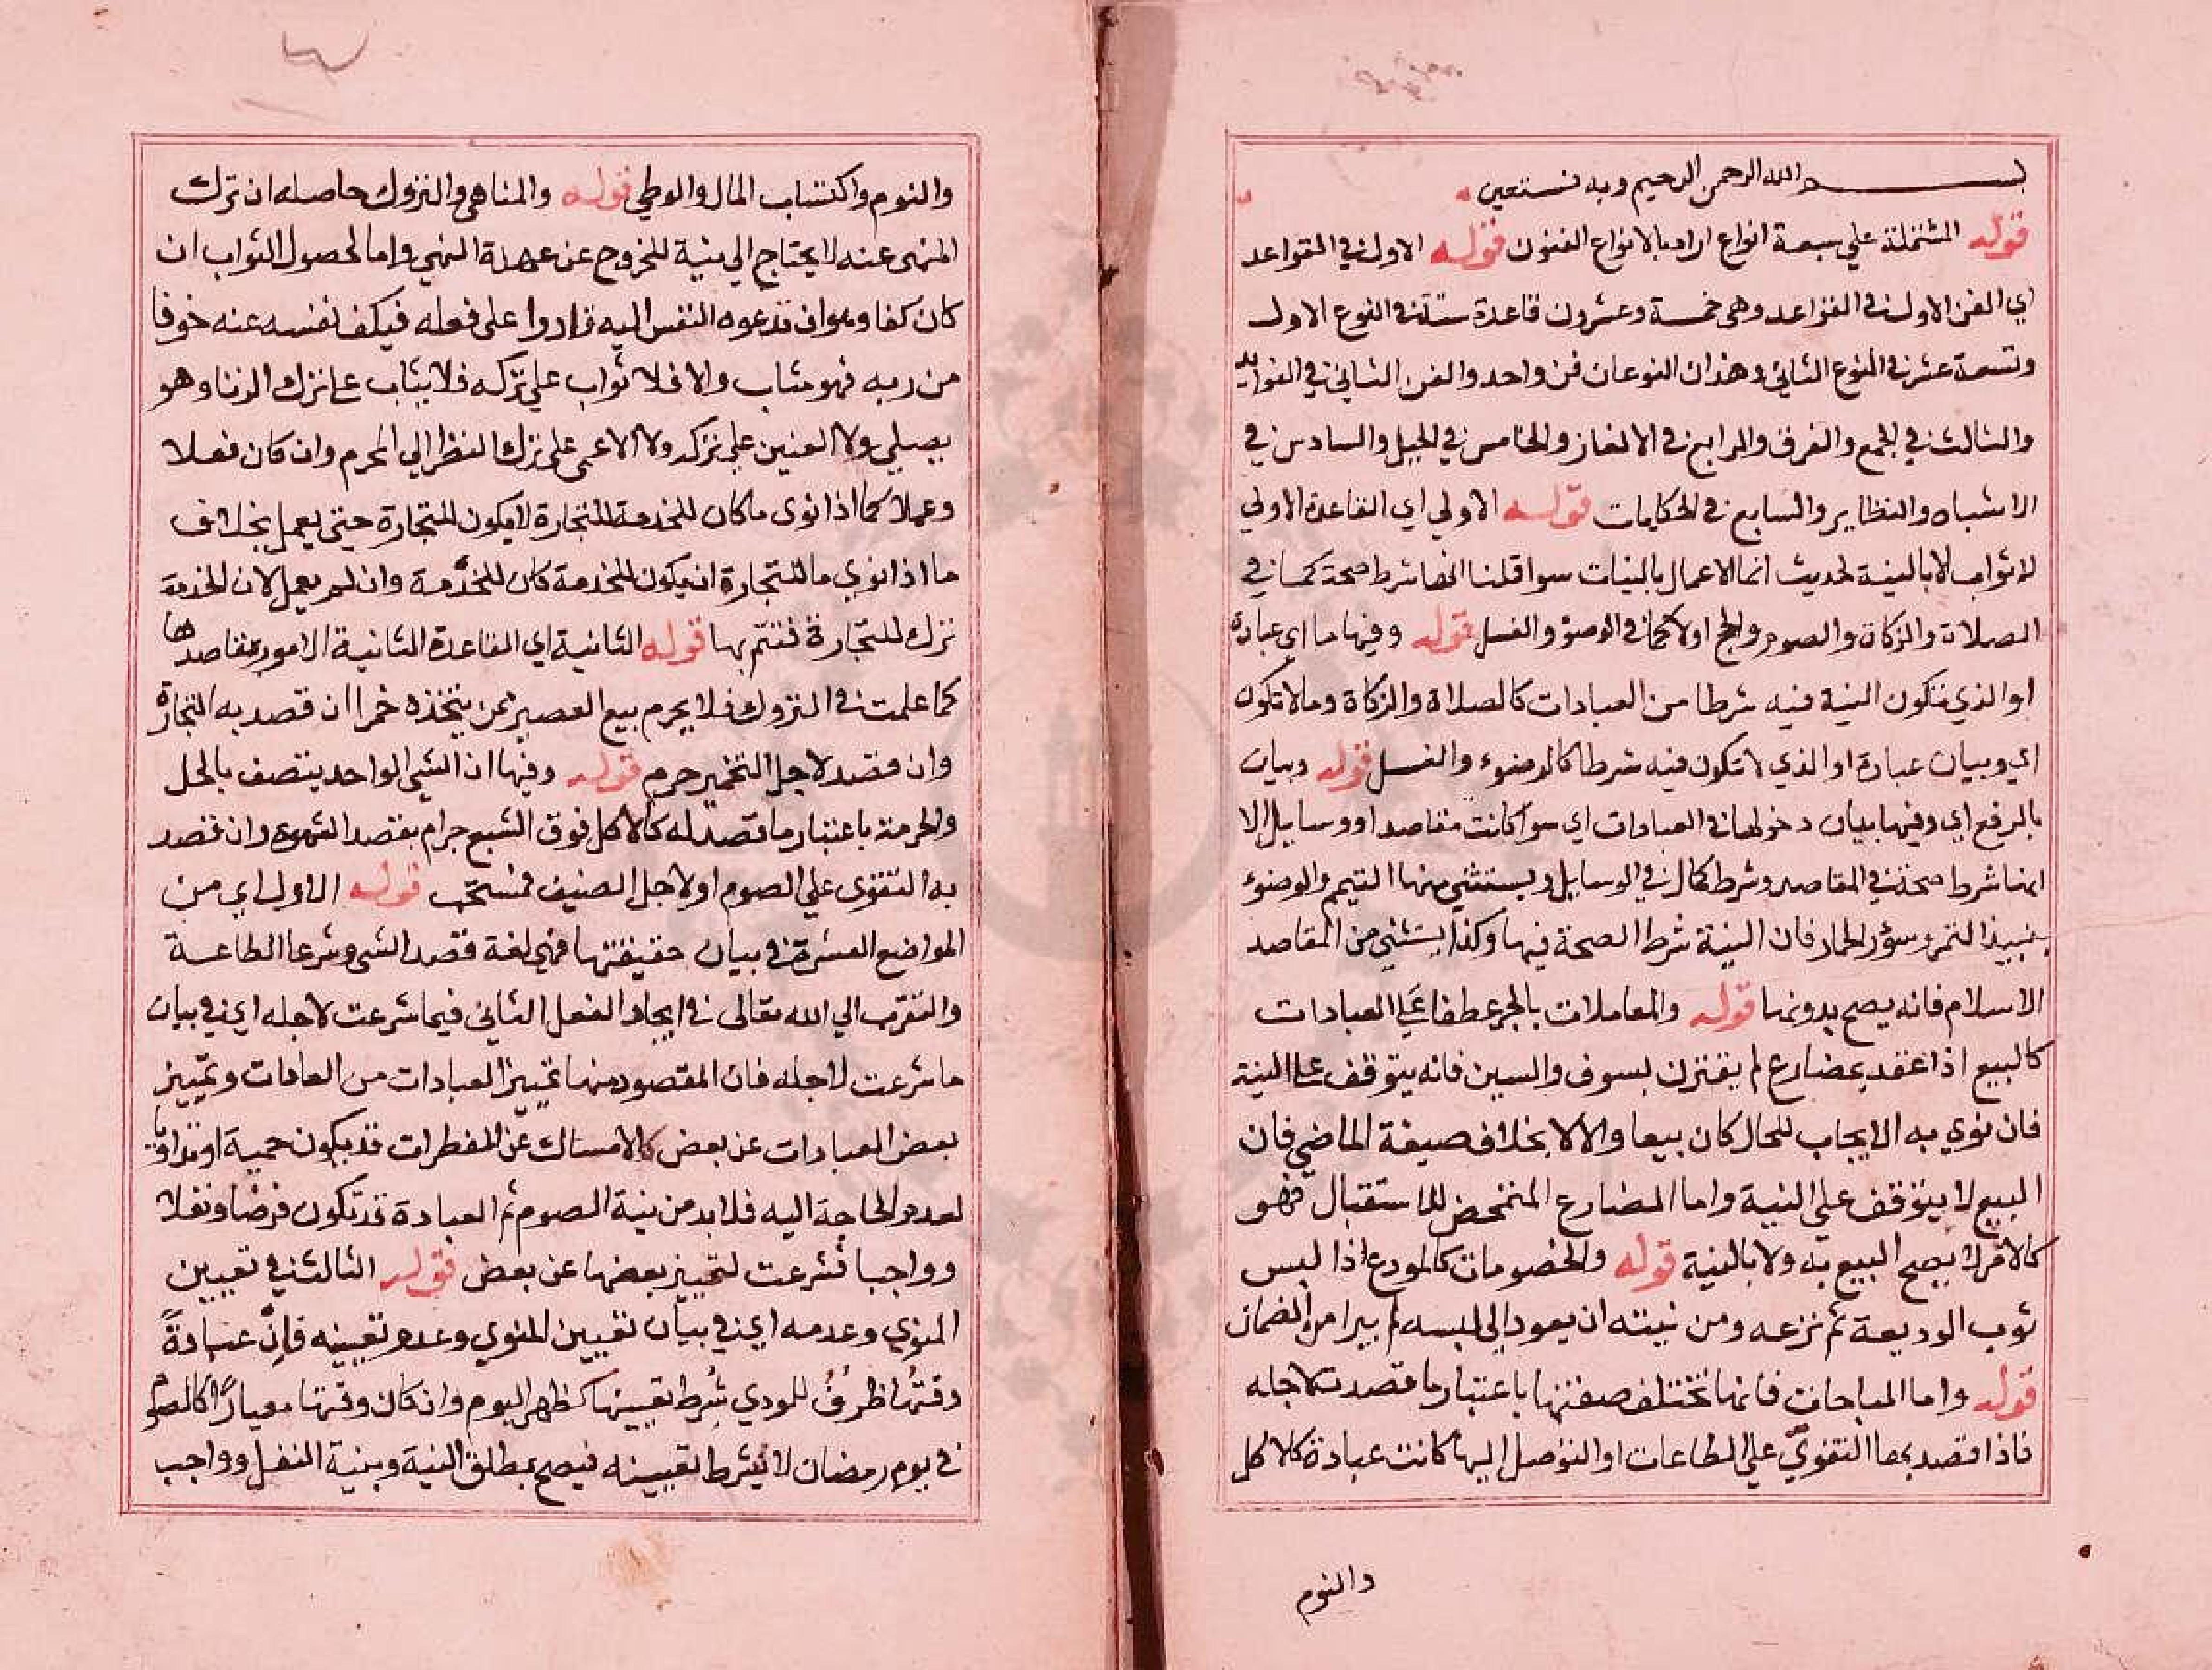 بسم الله الرحمن الرحيم وبه نستعين
قوله المشتملة علي سبعة انواع اراد بالانواع الفنون قوله الاول في القواعد
اي الفن الاول في القواعد وهي خمسة وعشرون قاعدة ستة في النوع الاول
وتسعة عشر في النوع الثاني وهذان النوعان فن واحد والفن الثاني في الفوايد
والثالث في الجمع والفرق والرابع في الالغاز والخامس في الحيل والسادس في
الاشباه والنظاير والسابع في الحكايات قوله الاولي اي القاعدة الاولي
لا ثواب الا بالنية لحديث انما الاعمال بالنيات سوا قلنا انها شرط صحة كما في
الصلاة والزكاة والصوم والحج اولا كما في الوضؤ والغسل قوله وفيها ما اي عبادة
او الذي تكون النية فيه شرطا من العبادات كالصلاة والزكاة وما لا تكون
اي وبيان عبادة او الذي لا تكون فيه شرطا كالوضوء والغسل قوله وبيان
بالرفع اي وفيها بيان دخولها في العبادات اي سوا كانت مقاصد او وسايل الا
انها شرط صحة في المقاصد وشرط كمال في الوسايل ويستثني منها التيمم والوضوء
بنبيذ التمر وسؤر الحمار فان النية شرط الصحة فيها وكذا يستثني من المقاصد
الاسلام فانه يصح بدونها قوله والمعاملات بالجر عطفا علي العبادات
كالبيع اذا عقد بمضارع لم يقترن بسوف والسين فانه يتوقف علي النية
فان نوي به الايجاب للحال كان بيعا والا لا بخلاف صيغة الماضي فان
البيع لا يتوقف علي النية واما المضارع المتمحض للاستقبال فهو
كالامر لا يصح البيع به ولا بالنية قوله والخصومات كالمودع اذا لبس
ثوب الوديعة ثم نزعه ومن نيته ان يعود الي لبسه لم يبرا من الضمان
قوله واما المباحات فانها تختلف صفتها باعتبار ما قصدت لاجله
فاذا قصد بها التقوي علي الطاعات او التوصل اليها كانت عبادة كالاكل
والنوم
والنوم واكتساب المال والوطي قوله والمناهي والتروك حاصله ان ترك
المنهي عنه لا يحتاج الي نية للخروج عن عهدة النهي واما لحصول الثواب ان
كان كفا وهو ان تدعوه النفس اليه قادرا علي فعله فيكف نفسه عنه خوفا
من ربه فهو مثاب والا فلا ثواب علي تركه فلا يثاب علي ترك الزنا وهو
يصلي ولا العنين علي تركه ولا الاعمي علي ترك النظر الي المحرم وان كان فعلا
وعملا كما اذا نوي ما كان للخدمة للتجارة لا يكون للتجارة حتي يعمل بخلاف
ما اذا نوي ما للتجارة ان يكون للخدمة كان للخدمة وان لم يعمل لان الخدمة
ترك للتجارة فتتم بها قوله الثانية اي القاعدة الثانية الامور بمقاصدها
كما علمت في التروك فلا يحرم بيع العصير ممن يتخذه خمرا ان قصد به التجارة
وان قصد لاجل التخمير حرم قوله وفيها ان الشي الواحد يتصف بالحل
والحرمة باعتبار ما قصد له كالاكل فوق الشبع حرام بقصد الشهوة وان قصد
به التقوي علي الصوم او لاجل الضيف فمستحب قوله الاول اي من
المواضع العشرة في بيان حقيقتها فهي لغة قصد الشي وشرعا الطاعة
والتقرب الي الله تعالى في ايجاد الفعل الثاني فيما شرعت لاجله اي في بيان
ما شرعت لاجله فان المقصود منها تمييز العبادات من العادات وتمييز
بعض العبادات عن بعض كالامساك عن المفطرات قد يكون حمية او تداويا
لعدم الحاجة اليه فلا بد من نية الصوم ثم العبادة قد تكون فرضا ونفلا
وواجبا فشرعت لتمييز بعضها عن بعض قوله الثالث في تعيين
المنوي وعدمه اي في بيان تعيين المنوي وعدم تعيينه فان عبادةً
وقتُها ظرفٌ للمودي شُرط تعيينها كظهر اليوم وان كان وقتها معيارًا كالصوم
في يوم رمضان لا يشرط تعيينه فيصح بمطلق النية وبنية النفل وواجب